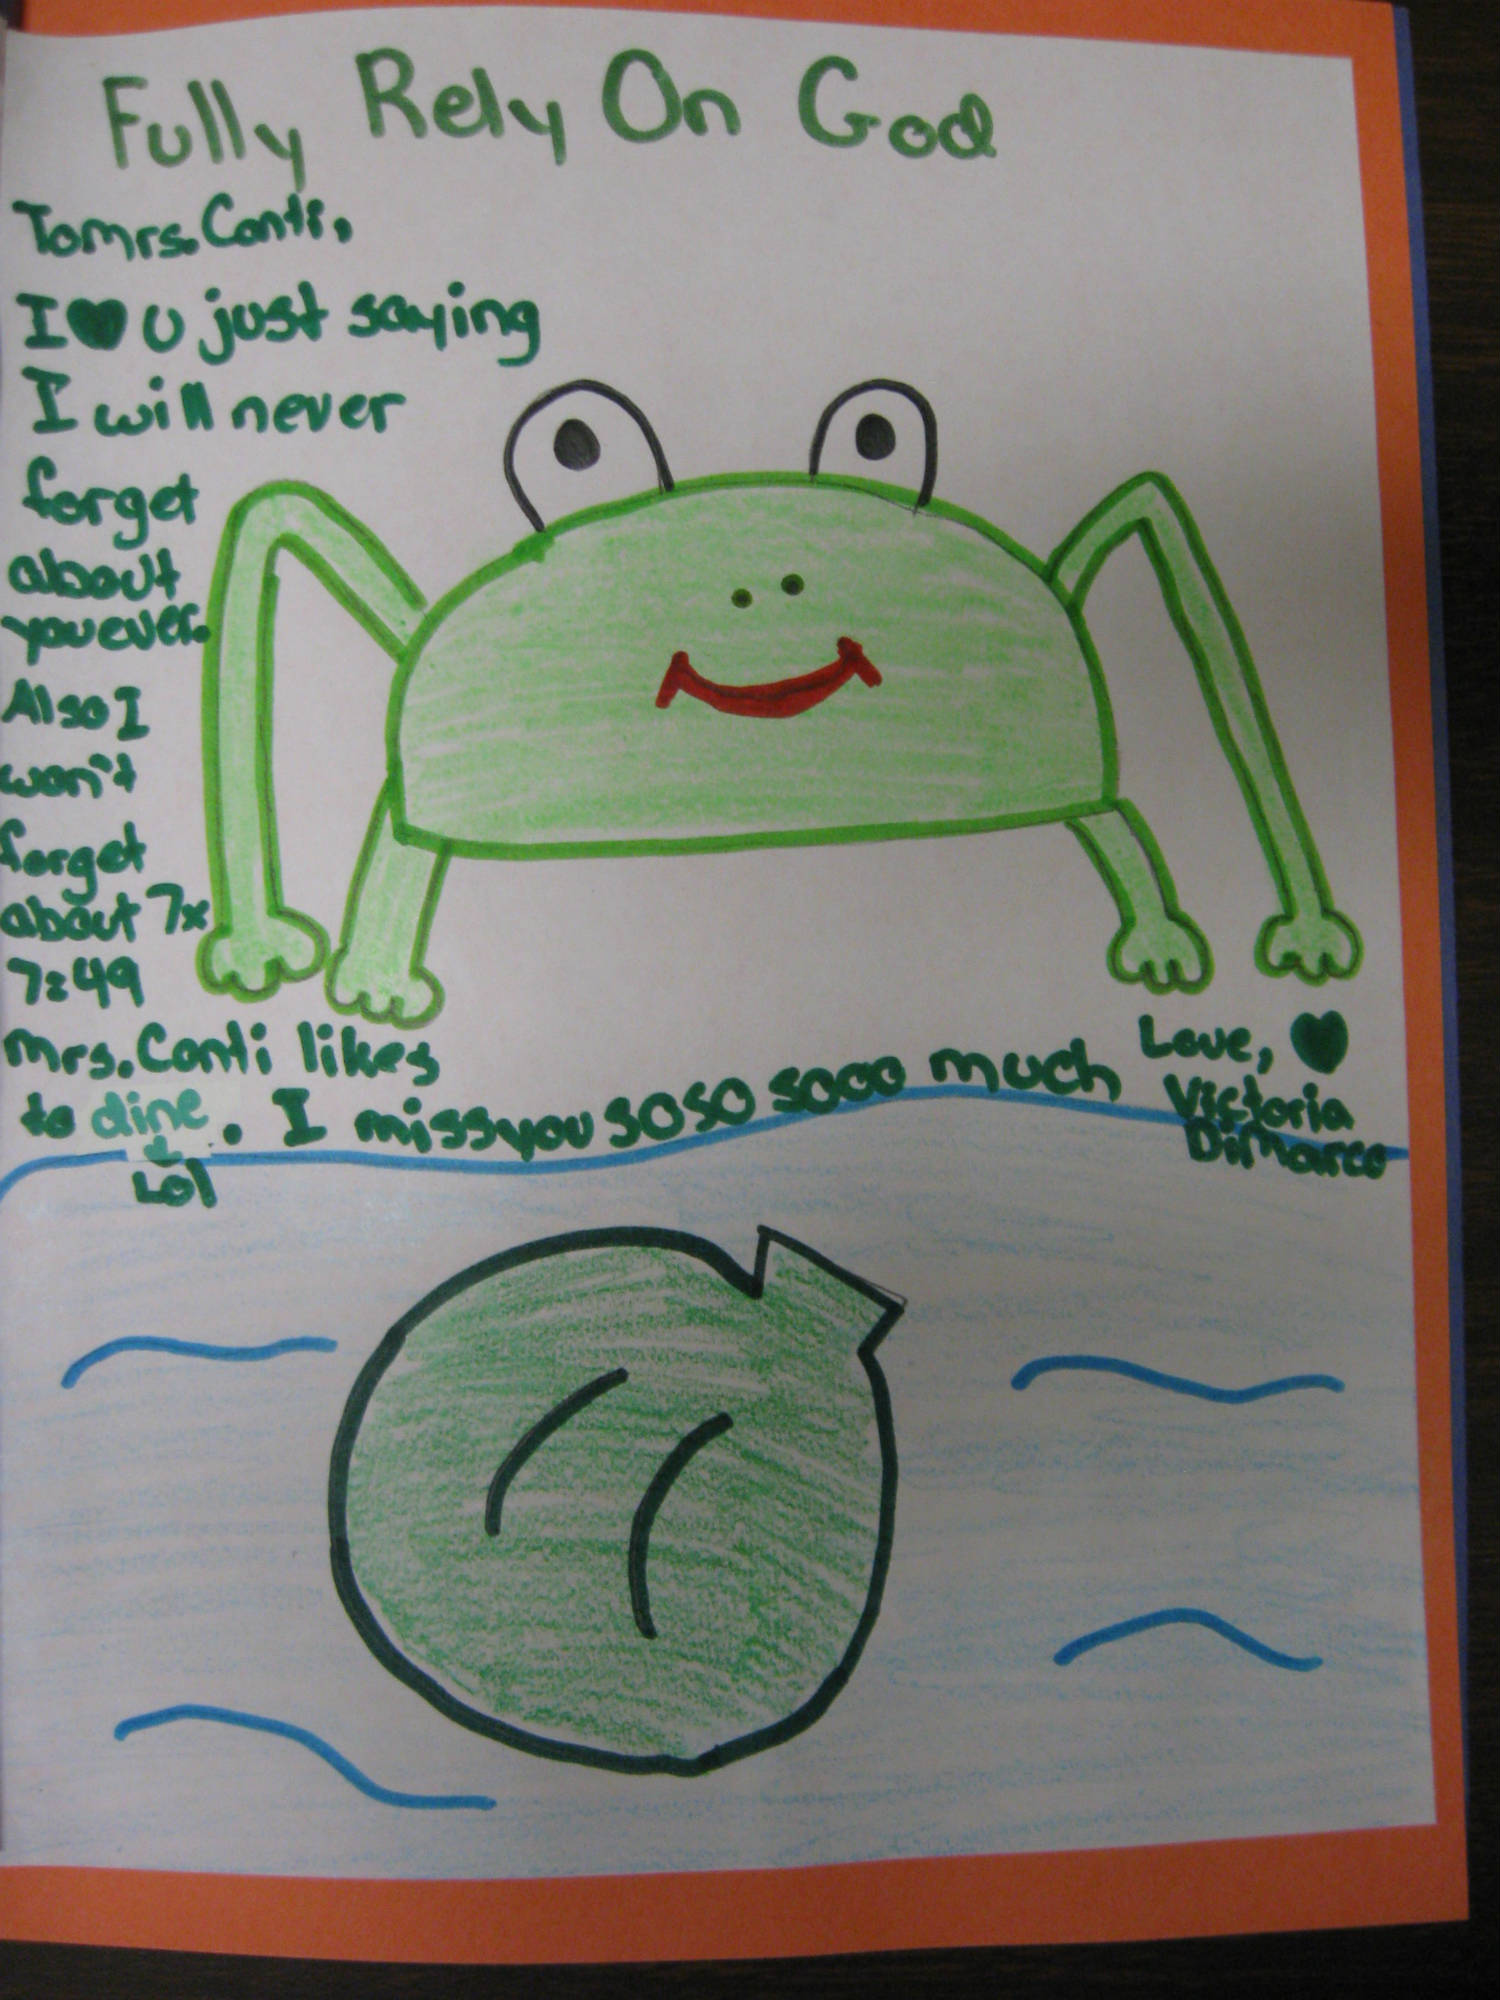 Fully Rely On God
To mrs. Conti,
I ♥ U just saying
I will never
forget
about
you ever.
Also I
won't
forget
about 7x
7=49
Mrs. Conti likes
to dine. I miss you so so sooo much
Lol
Love, ♥
Victoria
DiMarco